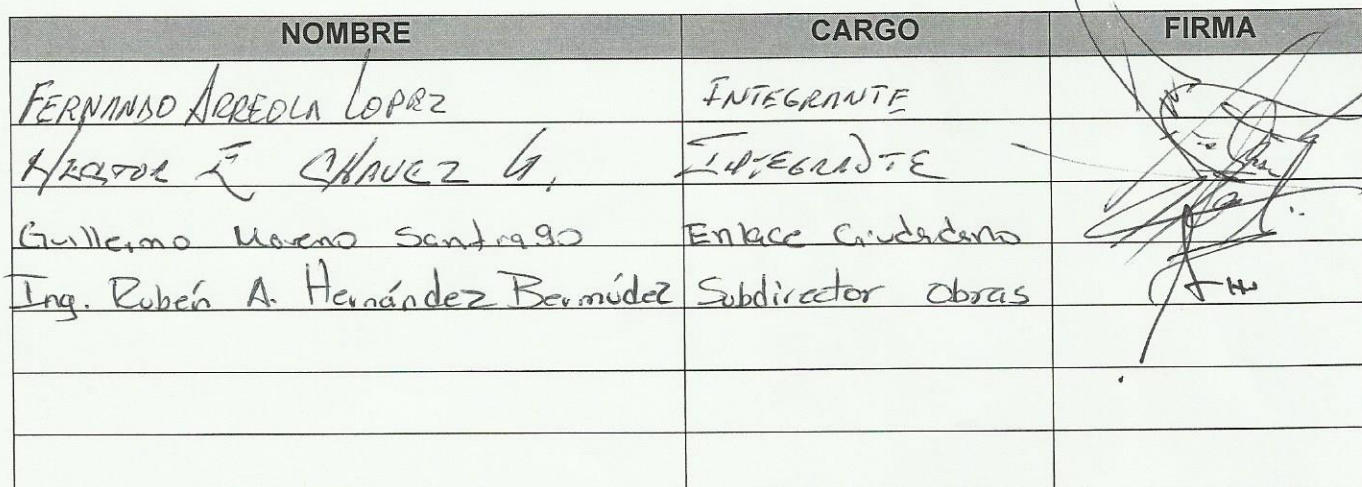 NOMBRE CARGO FIRMA
FERNANDO ARREOLA LOPEZ INTEGRANTE
HECTOR E CHAVEZ G. INTEGRANTE
Guillermo Moreno Santiago Enlace Ciudadano
Ing. Rubén A. Hernández Bermúdez Subdirector Obras